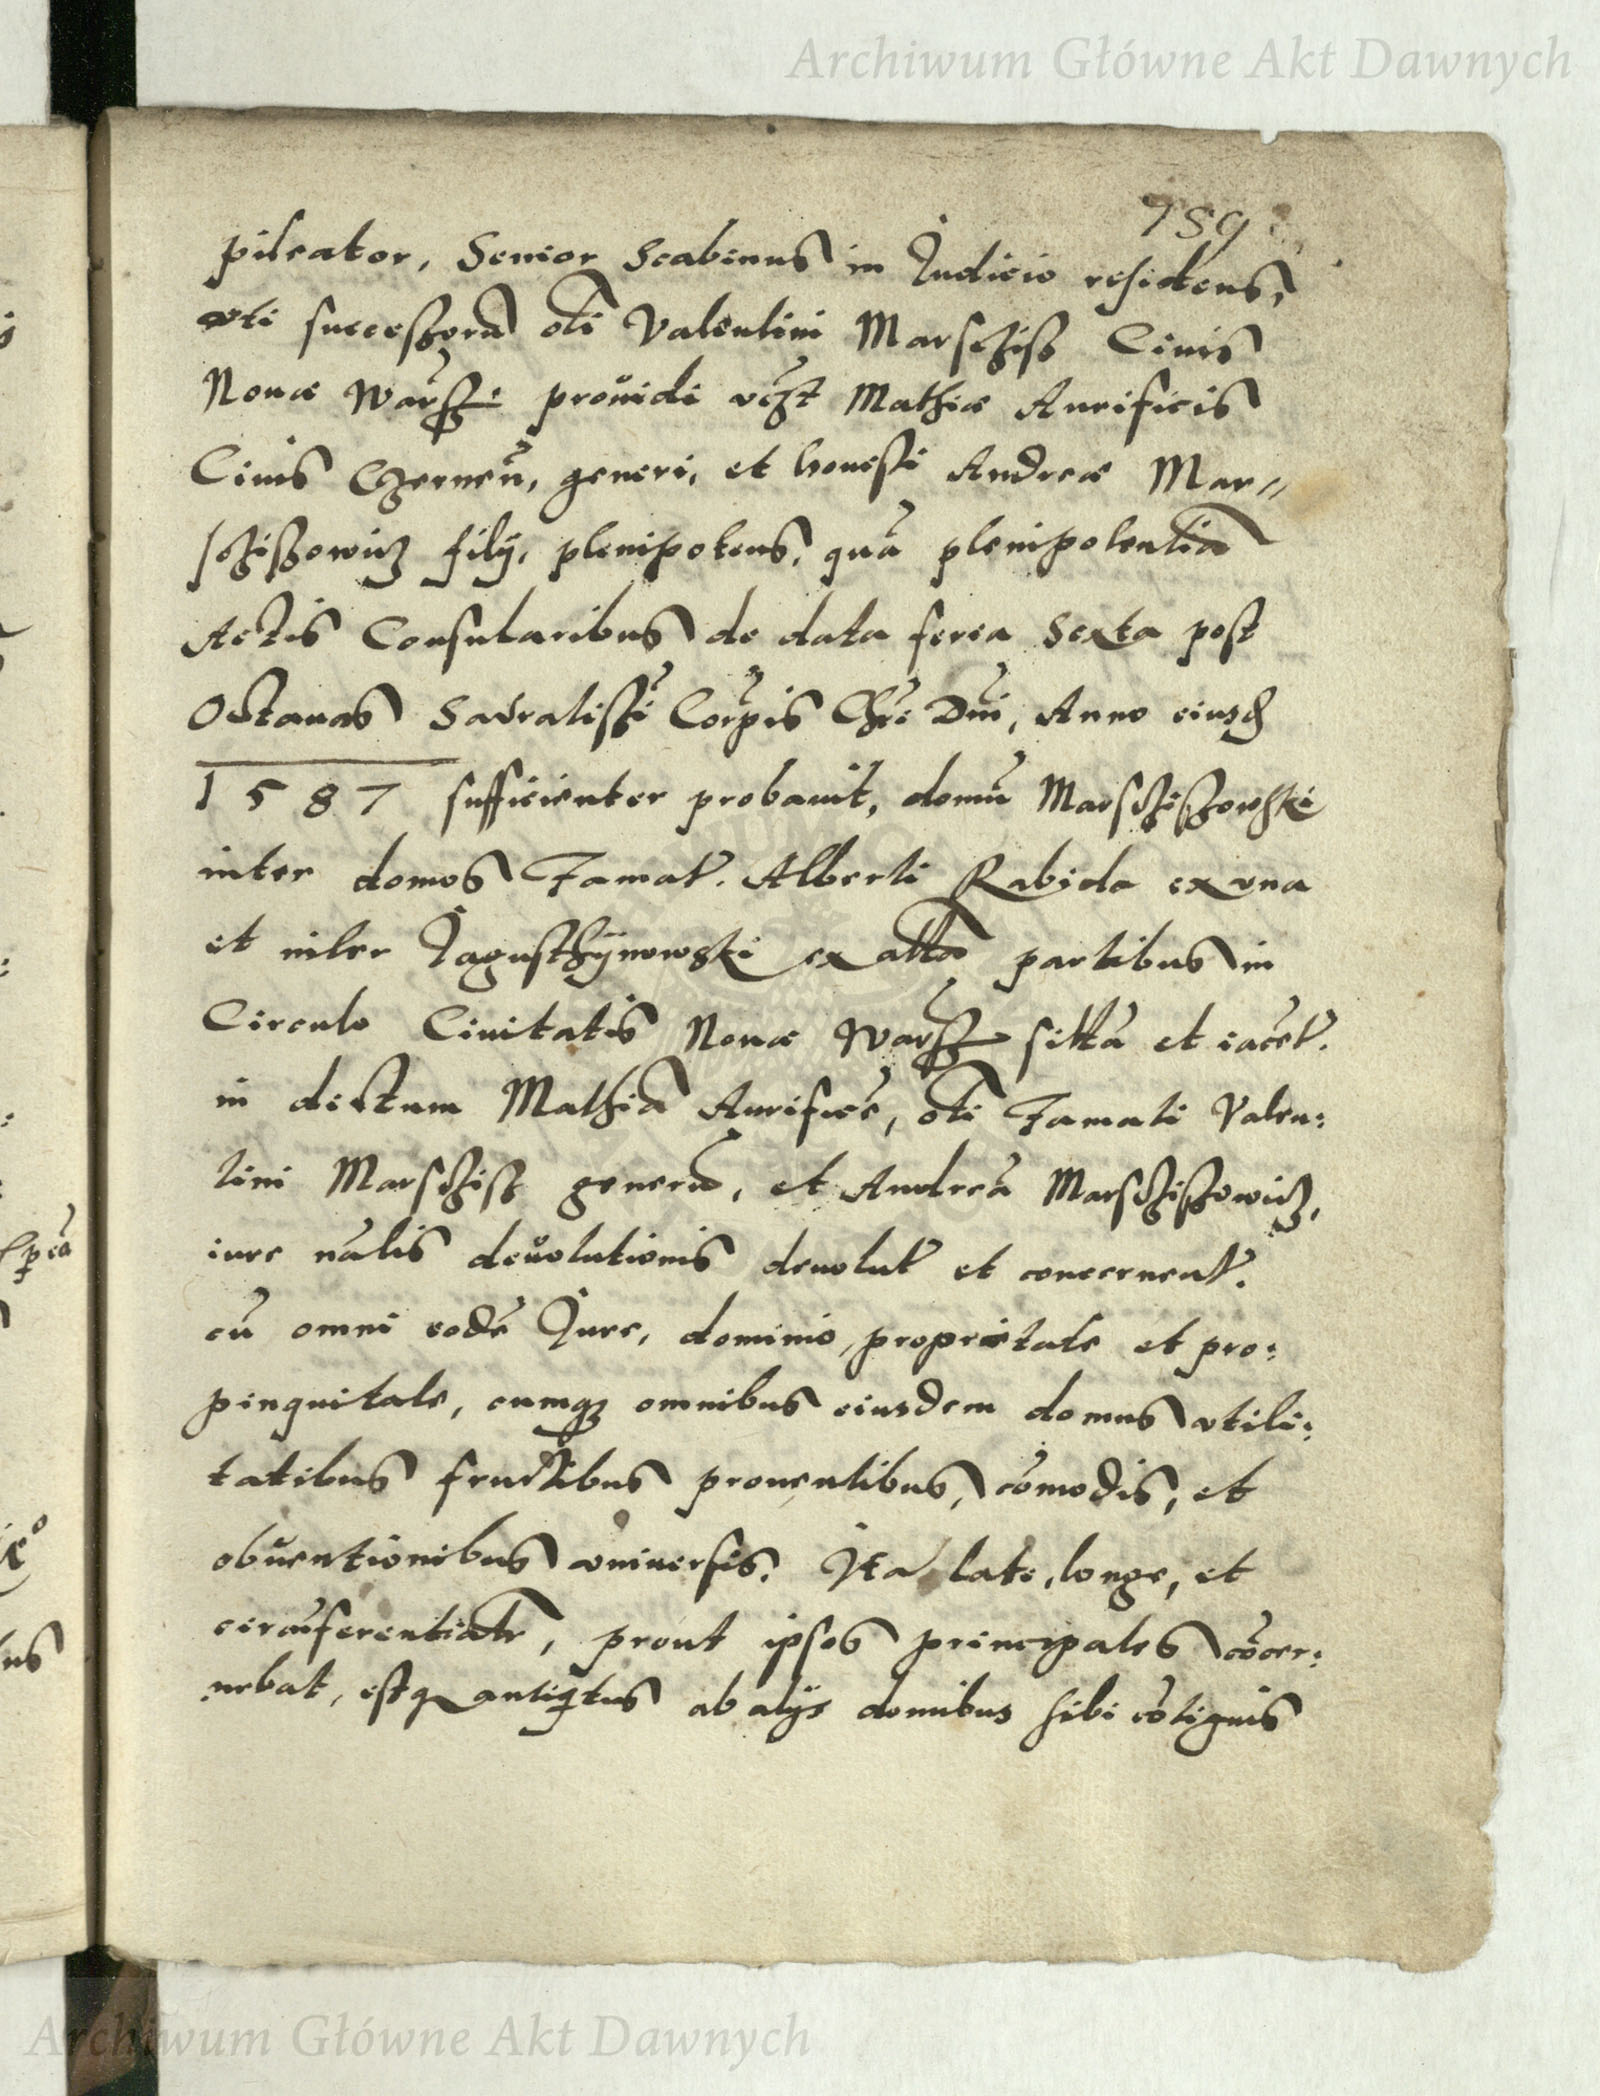 Archiwum Główne Akt Dawnych
789
pileator, Senior Scabinus in Iudicio residens,
vti successorū oĩ Valentini Marsczisz Ciuis
Nouæ Warsz: prouidi vczt Mathiæ Aurificis
Ciuis Czernen̄, generi, et honesti Andreæ Mar=
sczissowicz filij, plenipotens, quā plenipotentiā
Actis Consularibus de data feria Sexta post
Octauas Sacratissi Corpis Chri Dni, Anno eiusd
1587 sufficienter probauit, domū Marsczissowski
inter domos Famat. Alberti Rabida ex vna
et inter Jagusthÿnowski ex altā partibus in
Circulo Ciuitatis Nouæ Warsz sittā et iacēt.
in dictum Mathiā Aurificē, oĩ Famati Valen:
tini Marsczisz generū, et Andreā Marsczissowicz,
iure nālis deuolutionis deuolut et concernent.
cū omni eodē Iure, dominio, proprietate et pro:
pinquitate, cumqz omnibus eiusdem domus vtili:
tatibus fructibus prouentibus, cōmodis, et
obuentionibus vniuersis. Ita late, longe, et
circūferentiatr, prout ipsos principales cōcer:
nebat, estq antiqtus ab alijs domibus sibi cōtiguis
Archiwum Główne Akt Dawnych